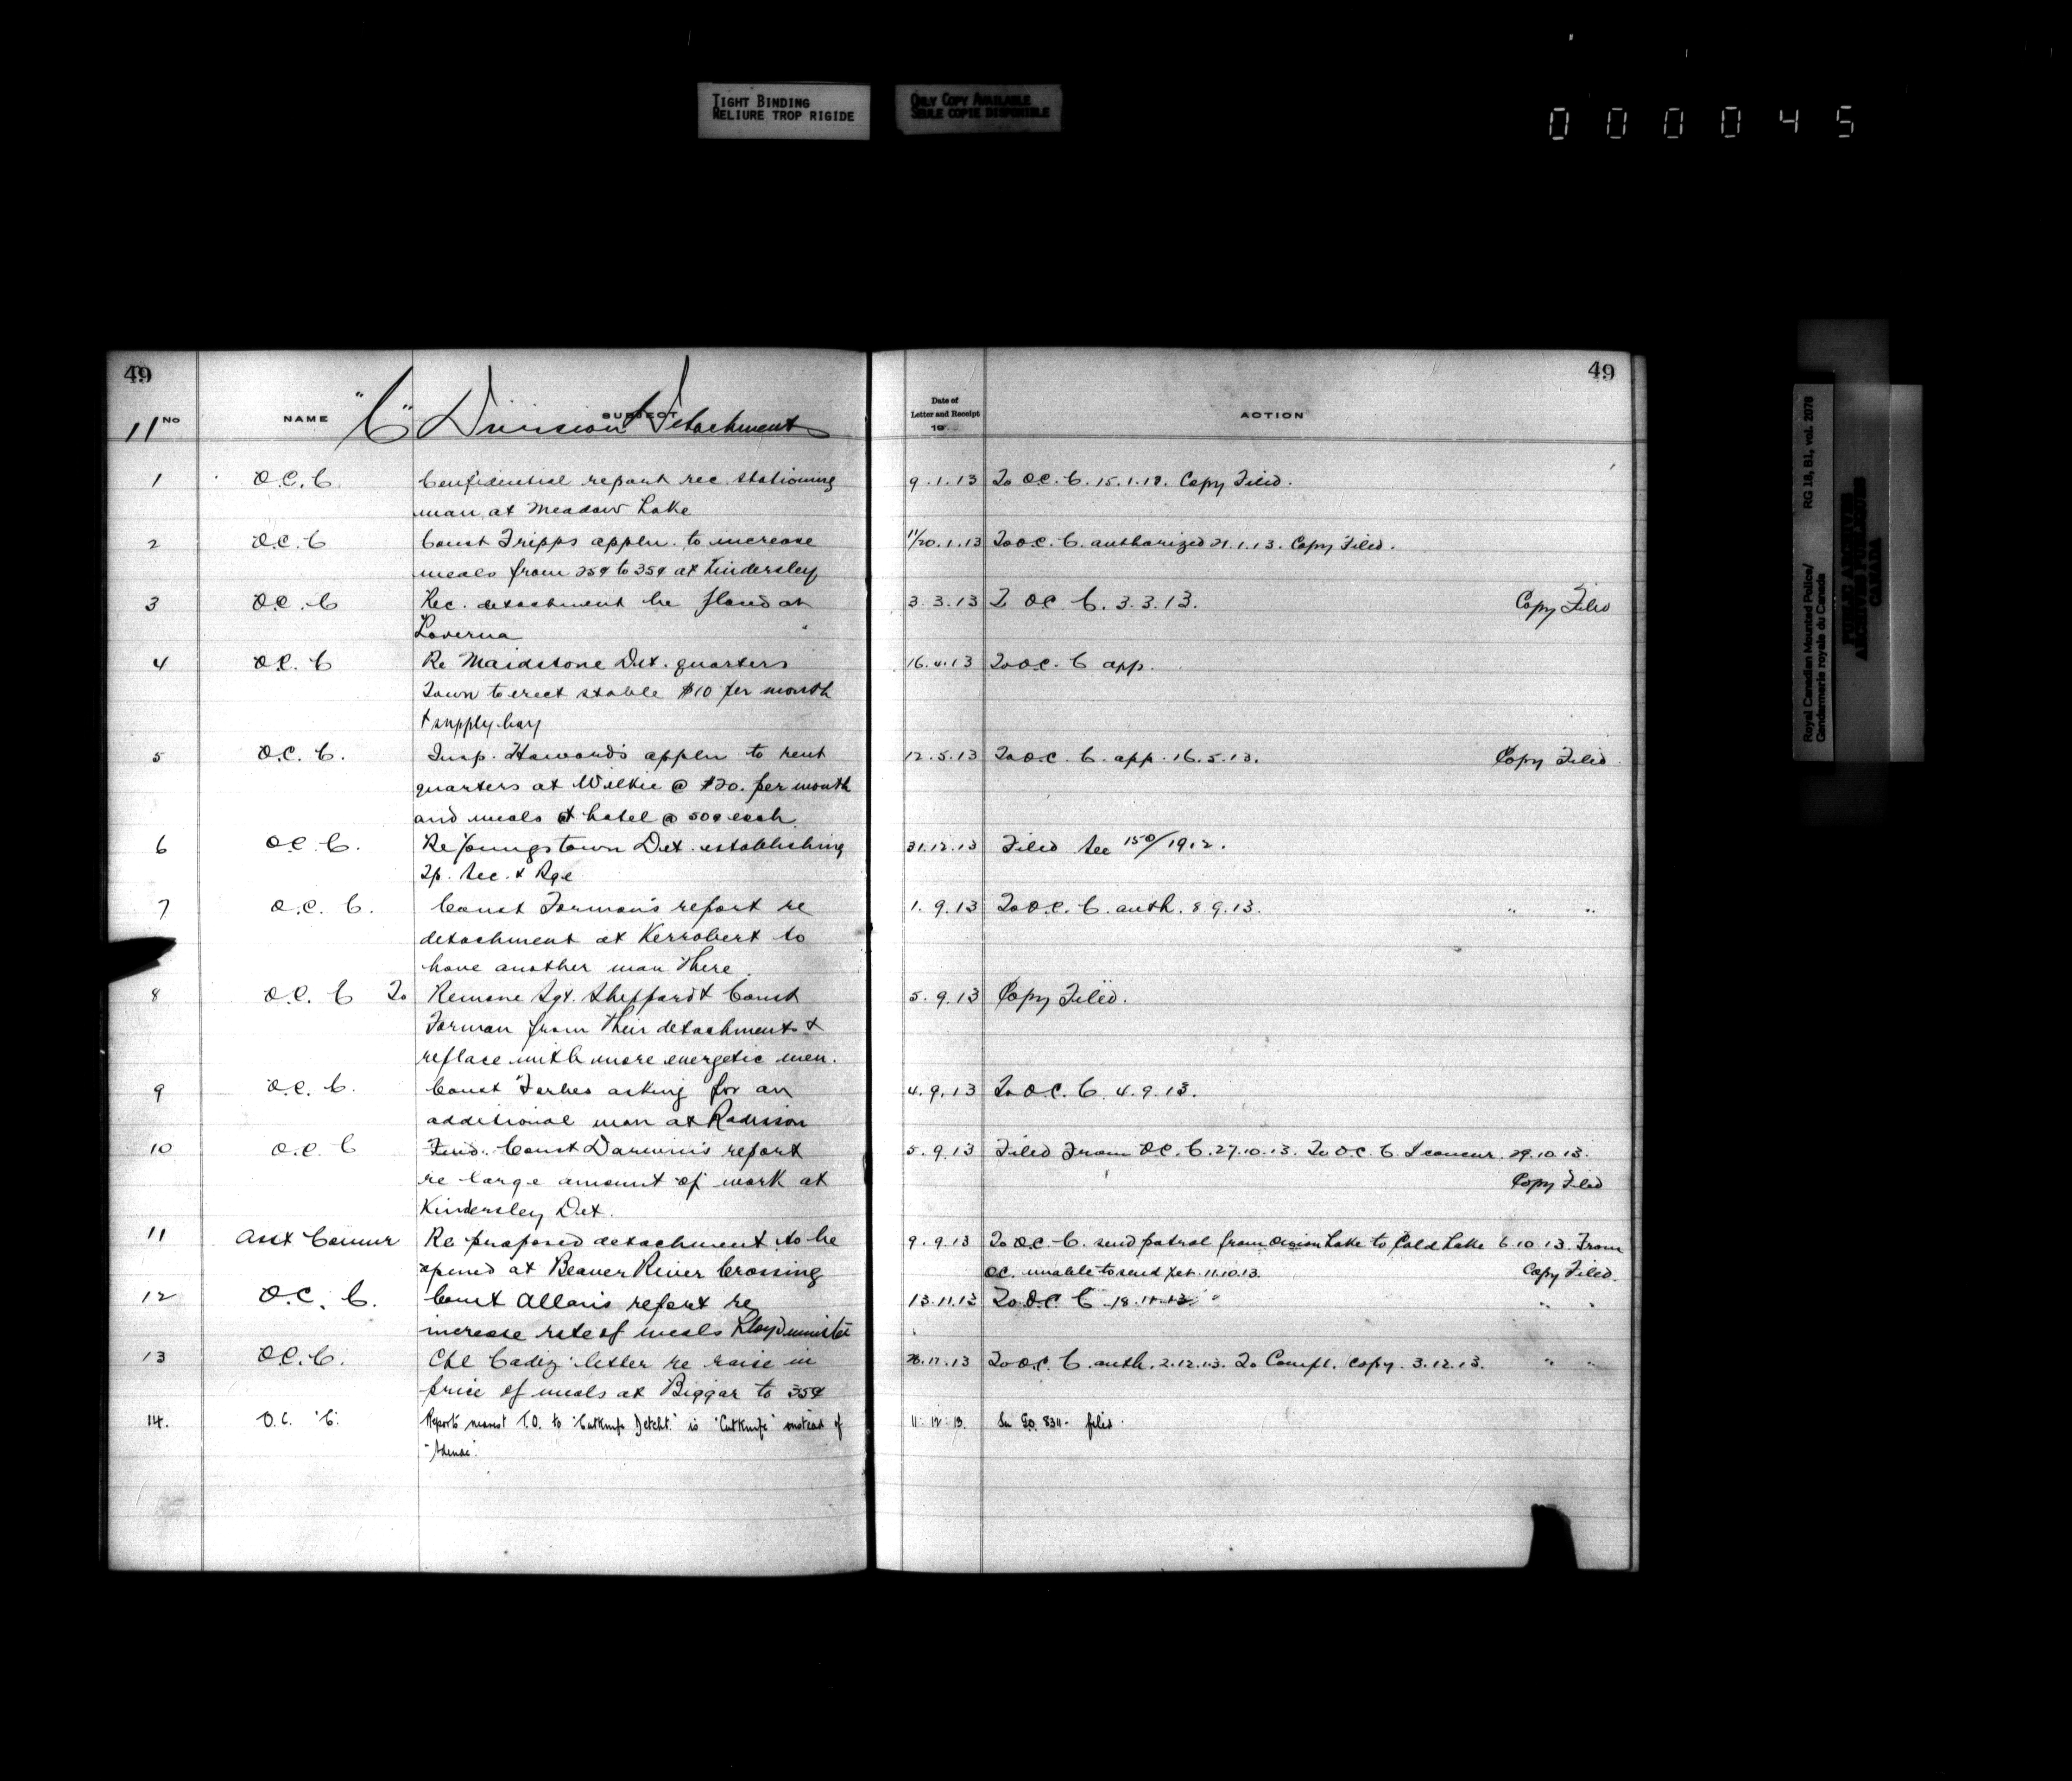 TIGHT BINDING
RELIURE TROP RIGIDE
ONLY COPY AVAILABLE
SEULE COPIE DISPONIBLE
000045
49
11 No NAME SUBJECT
"C" Division Detachments
1 O.C. C. Confidential report rec. stationing
man at Meadow Lake
2 O.C. C Const Tripps appln. to increase
meals from 25¢ to 35¢ at Kindersley
3 O.C. C Rec. detachment be placed at
Loverna
4 O.C. C Re Maidstone Det. quarters
Town to erect stable $10 per month
+ supply hay
5 O.C. C. Insp. Howard's appln to rent
quarters at Wilkie @ $20. per month
and meals at hotel @ 50¢ each
6 O.C C. Re Youngstown Det. establishing
Tp. Sec. & Rge
7 O.C. C. Const Forman's report re
detachment at Kerrobert to
have another man there.
8 O.C. C To Remove Sgt. Sheppard & Const
Forman from their detachments &
replace with more energetic men.
9 O.C. C. Const Forbes asking for an
additional man at Radisson
10 O.C. C Const Darwin's report
re large amount of work at
Kindersley Det.
11 Asst Commr Re proposed detachment to be
opened at Beaver River Crossing
12 O.C. C. Const Allan's report re
increase rate of meals Lloydminster
13 O.C. C. Cpl Cadiz letter re raise in
price of meals at Biggar to 35¢
14. O.C. "C". Reports nearest T.O. to "Cutknife Detcht." is "Cutknife" instead of
49
Date of
Letter and Receipt
19 ACTION
9.1.13 To O.C. C. 15.1.13. Copy Filed.
11/20.1.13 To O.C. C. authorized 21.1.13. Copy Filed.
3.3.13 To OC C. 3.3.13. Copy Filed
16.4.13 To O.C. C app.
12.5.13 To O.C. C. app. 16.5.13. Copy Filed
31.12.13 Filed See 150/1912.
1.9.13 To O.C. C. auth. 8.9.13. " "
5.9.13 Copy Filed.
4.9.13 To O.C. C. 4.9.13.
5.9.13 Filed From O.C. C. 27.10.13. To O.C. C. I concur. 29.10.13.
Copy Filed
9.9.13 To O.C. C. send patrol from Onion Lake to Cold Lake 6.10.13. From
OC. unable to send pat. 11.10.13. Copy Filed.
13.11.13 To O.C. C 18.11.13. " "
28.11.13 To O.C. C. auth. 2.12.13. To Compt. copy. 3.12.13. " "
11.12.13. filed.
Royal Canadian Mounted Police/ RG 18, B1, vol. 2078
Gendarmerie royale du Canada
PUBLIC ARCHIVES
ARCHIVES PUBLIQUES
CANADA